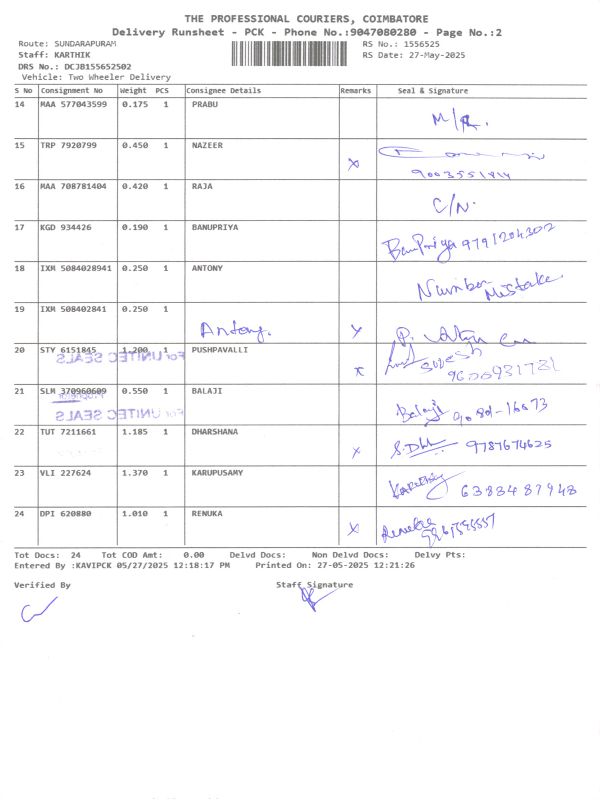 THE PROFESSIONAL COURIERS, COIMBATORE
Delivery Runsheet - PCK - Phone No.:9047080280 - Page No.:2
Route: SUNDARAPURAM RS No.: 1556525
Staff: KARTHIK RS Date: 27-May-2025
DRS No.: DCJB155652502
Vehicle: Two Wheeler Delivery
S No Consignment No Weight PCS Consignee Details Remarks Seal & Signature
14 MAA 577043599 0.175 1 PRABU
15 TRP 7920799 0.450 1 NAZEER x
9003551814
16 MAA 708781404 0.420 1 RAJA
C/N.
17 KGD 934426 0.190 1 BANUPRIYA
BanuPriya 9791204302
18 IXM 5084028941 0.250 1 ANTONY
Number Mistake
19 IXM 508402841 0.250 1
Antony. x
20 STY 6151845 1.200 1 PUSHPAVALLI
For UNITEC SEALS x 9600931731
21 SLM 370960609 0.550 1 BALAJI
For UNITEC SEALS Balaji
22 TUT 7211661 1.185 1 DHARSHANA
x 9787674625
23 VLI 227624 1.370 1 KARUPUSAMY
6383487948
24 DPI 620880 1.010 1 RENUKA
x Renuka
Tot Docs: 24 Tot COD Amt: 0.00 Delvd Docs: Non Delvd Docs: Delvy Pts:
Entered By :KAVIPCK 05/27/2025 12:18:17 PM Printed On: 27-05-2025 12:21:26
Verified By Staff Signature